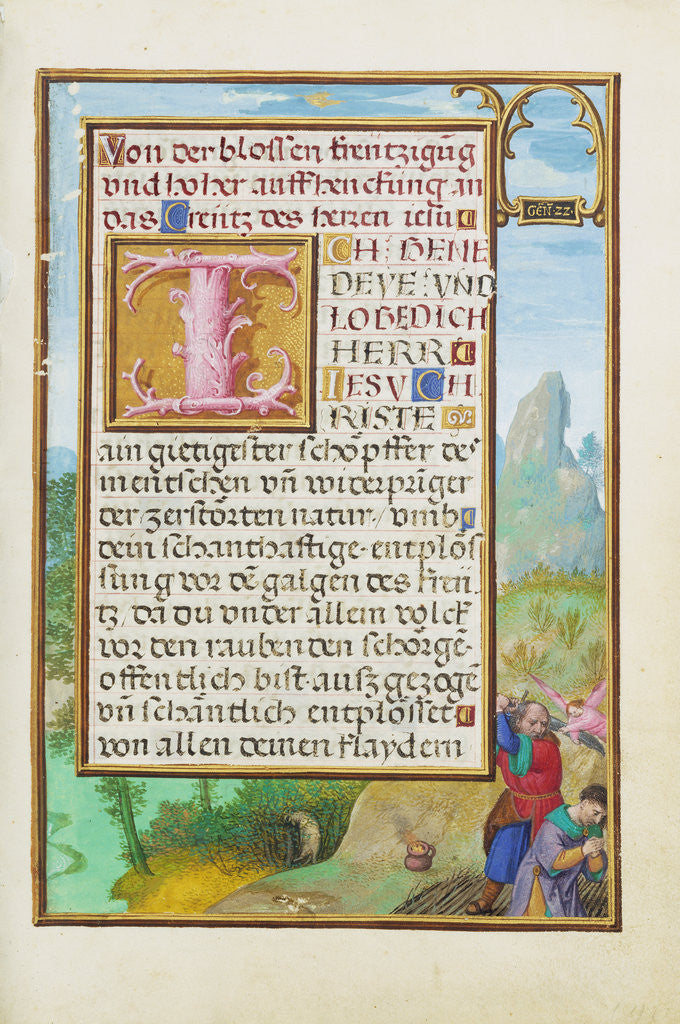 Von der blossen kreützigūg
vnd hoher auffhenckung an
das Creütz des herren iesu
ICH BENE
DEYE VND
LOBE DICH
HERR
IESV CH
RISTE
GEN̄ 22
ain gietigester schöpffer des
mentschen vn̄ widerprīger
der zerstörten natur / vmb
dein schanthaftige entplös
sung vor dē galgen des kreü
tz / da du vnder allem volck
vor den raubenden schörgē
offentlich bist auszgezogē
vn̄ schäntlich entplösset
von allen deinen klaydern